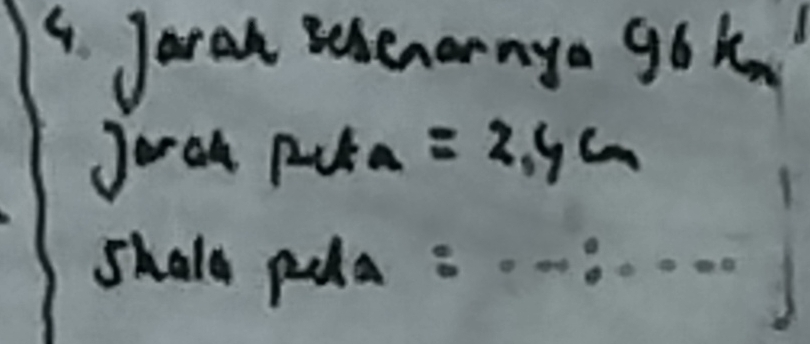 4. Jarak sebenarnya 96 km
Jarak peta = 2,4 cm
Skala peta = ...:......